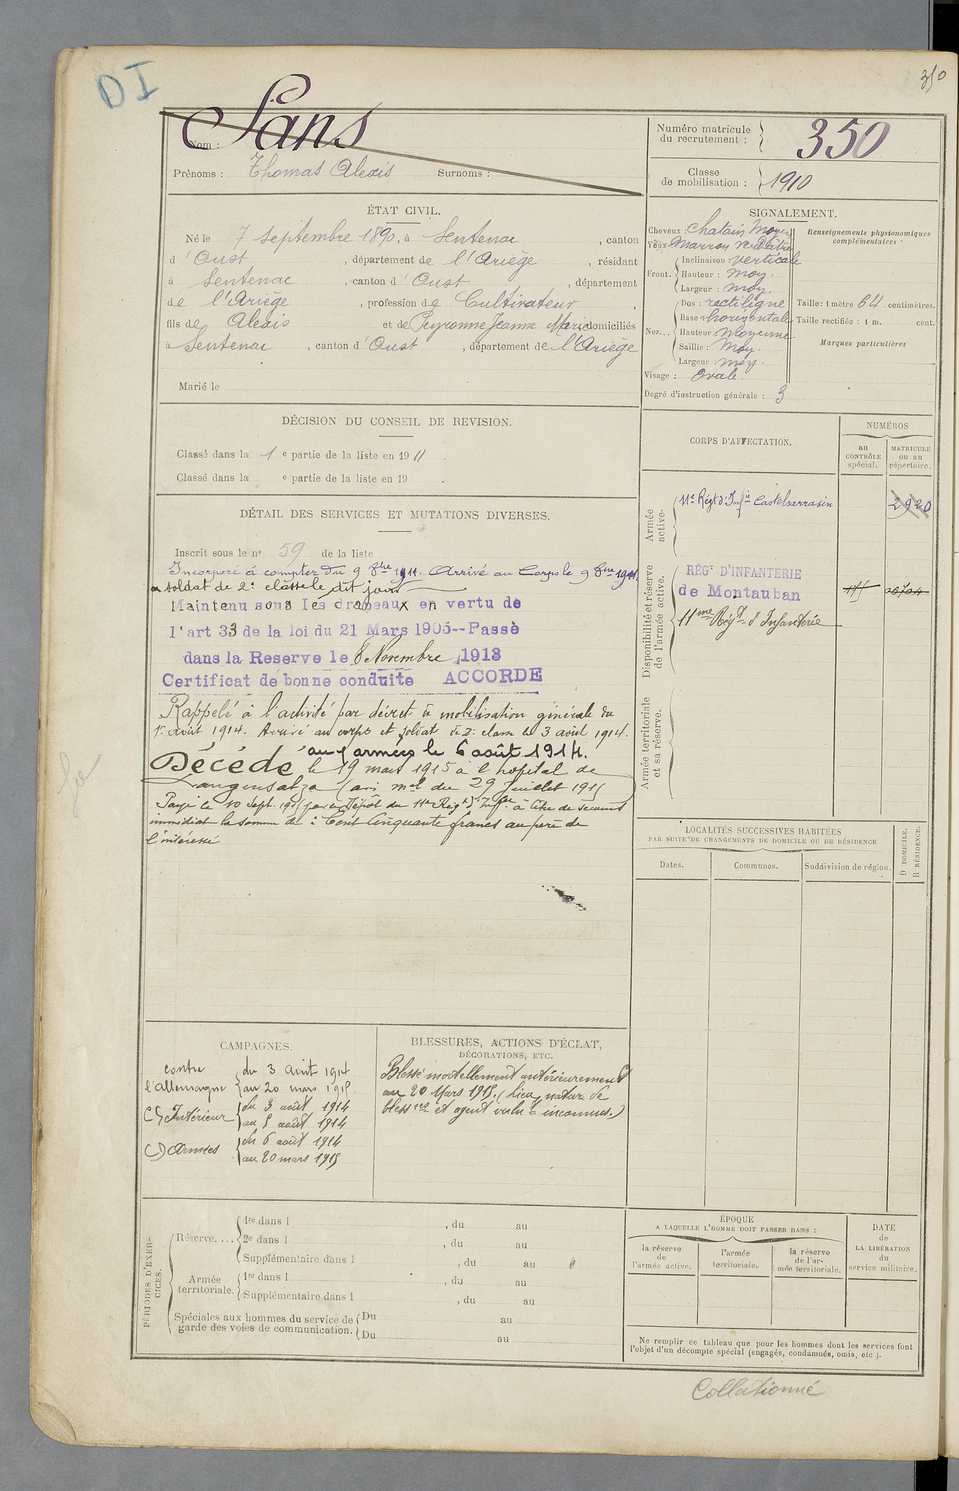 DI
350
Nom : Sans
Numéro matricule du recrutement : 350
Prénoms : Thomas Alexis Surnoms :
Classe de mobilisation : 1910
ÉTAT CIVIL.
Né le 7 septembre 1890, à Sentenac , canton
d'Oust , département de l'Ariège , résidant
à Sentenac , canton d'Oust , département
de l'Ariège , profession de Cultivateur ,
fils de Alexis et de Peyronne Jeanne Marie domiciliés
à Sentenac , canton d'Oust , département de l'Ariège
Marié le
SIGNALEMENT.
Cheveux : Chatain Moyen
Yeux Marron verdâtre
Front. Inclinaison : verticale
Hauteur : moy.
Largeur : moy.
Nez... Dos : rectiligne
Base : horizontale
Hauteur : moyenne
Saillie : Moy.
Largeur : moy.
Visage : Ovale
Degré d'instruction générale : 3
Renseignements physionomiques complémentaires :
Taille : 1 mètre 64 centimètres.
Taille rectifiée : 1 m. cent.
Marques particulières
DÉCISION DU CONSEIL DE REVISION.
Classé dans la 1e partie de la liste en 1911.
Classé dans la e partie de la liste en 19 .
DÉTAIL DES SERVICES ET MUTATIONS DIVERSES.
Inscrit sous le n° 59 de la liste
Incorporé à compter du 9 8bre 1911. Arrivé au Corps le 9 8bre 1911.
soldat de 2e classe le dit jour
Maintenu sous les drapeaux en vertu de
l'art 33 de la loi du 21 Mars 1905--Passé
dans la Reserve le 8 Novembre 1913
Certificat de bonne conduite ACCORDE
Rappelé à l'activité par décret de mobilisation générale du
1er août 1914. Arrivé au corps et soldat de 2e classe le 3 août 1914.
aux armées le 6 août 1914.
Décédé le 19 mars 1915 à l'hopital de
Langensalza (avis mel du 29 juillet 1915
Payé le 10 Sept. 1915 par le Dépôt du 11e Régt d'Inftie à titre de secours
immédiat la somme de : Cent Cinquante francs au père de
l'intéressé
CORPS D'AFFECTATION.
NUMÉROS
au CONTRÔLE spécial.
MATRICULE ou au répertoire.
Armée active.
11e Régt d'Infie Castelsarrasin 2920
Disponibilité et réserve de l'armée active.
RÉGT D'INFANTERIE
de Montauban
11me Régt d'Infanterie
Armée territoriale et sa réserve.
LOCALITÉS SUCCESSIVES HABITÉES
PAR SUITE DE CHANGEMENTS DE DOMICILE OU DE RÉSIDENCE
Dates.
Communes.
Subdivision de région.
D DOMICILE.
R RÉSIDENCE.
CAMPAGNES.
contre l'allemagne du 3 août 1914
au 20 mars 1915.
C) Intérieur du 3 août 1914
au 5 août 1914
C) Armées du 6 août 1914
au 20 mars 1915
BLESSURES, ACTIONS D'ÉCLAT,
DÉCORATIONS, ETC.
Blessé mortellement antérieurement
au 20 Mars 1915. (lieu, nature de
bless res et agent vulnt inconnus.)
PÉRIODES D'EXERCICES.
Réserve.... 1re dans l , du au
2e dans l , du au
Supplémentaire dans l , du au
Armée territoriale. 1re dans l , du au
Supplémentaire dans l , du au
Spéciales aux hommes du service de garde des voies de communication. Du au
Du au
ÉPOQUE
A LAQUELLE L'HOMME DOIT PASSER DANS :
la réserve de l'armée active.
l'armée territoriale.
la réserve de l'armée territoriale.
DATE de LA LIBÉRATION du service militaire.
Ne remplir ce tableau que pour les hommes dont les services font
l'objet d'un décompte spécial (engagés, condamnés, omis, etc.).
Collationné